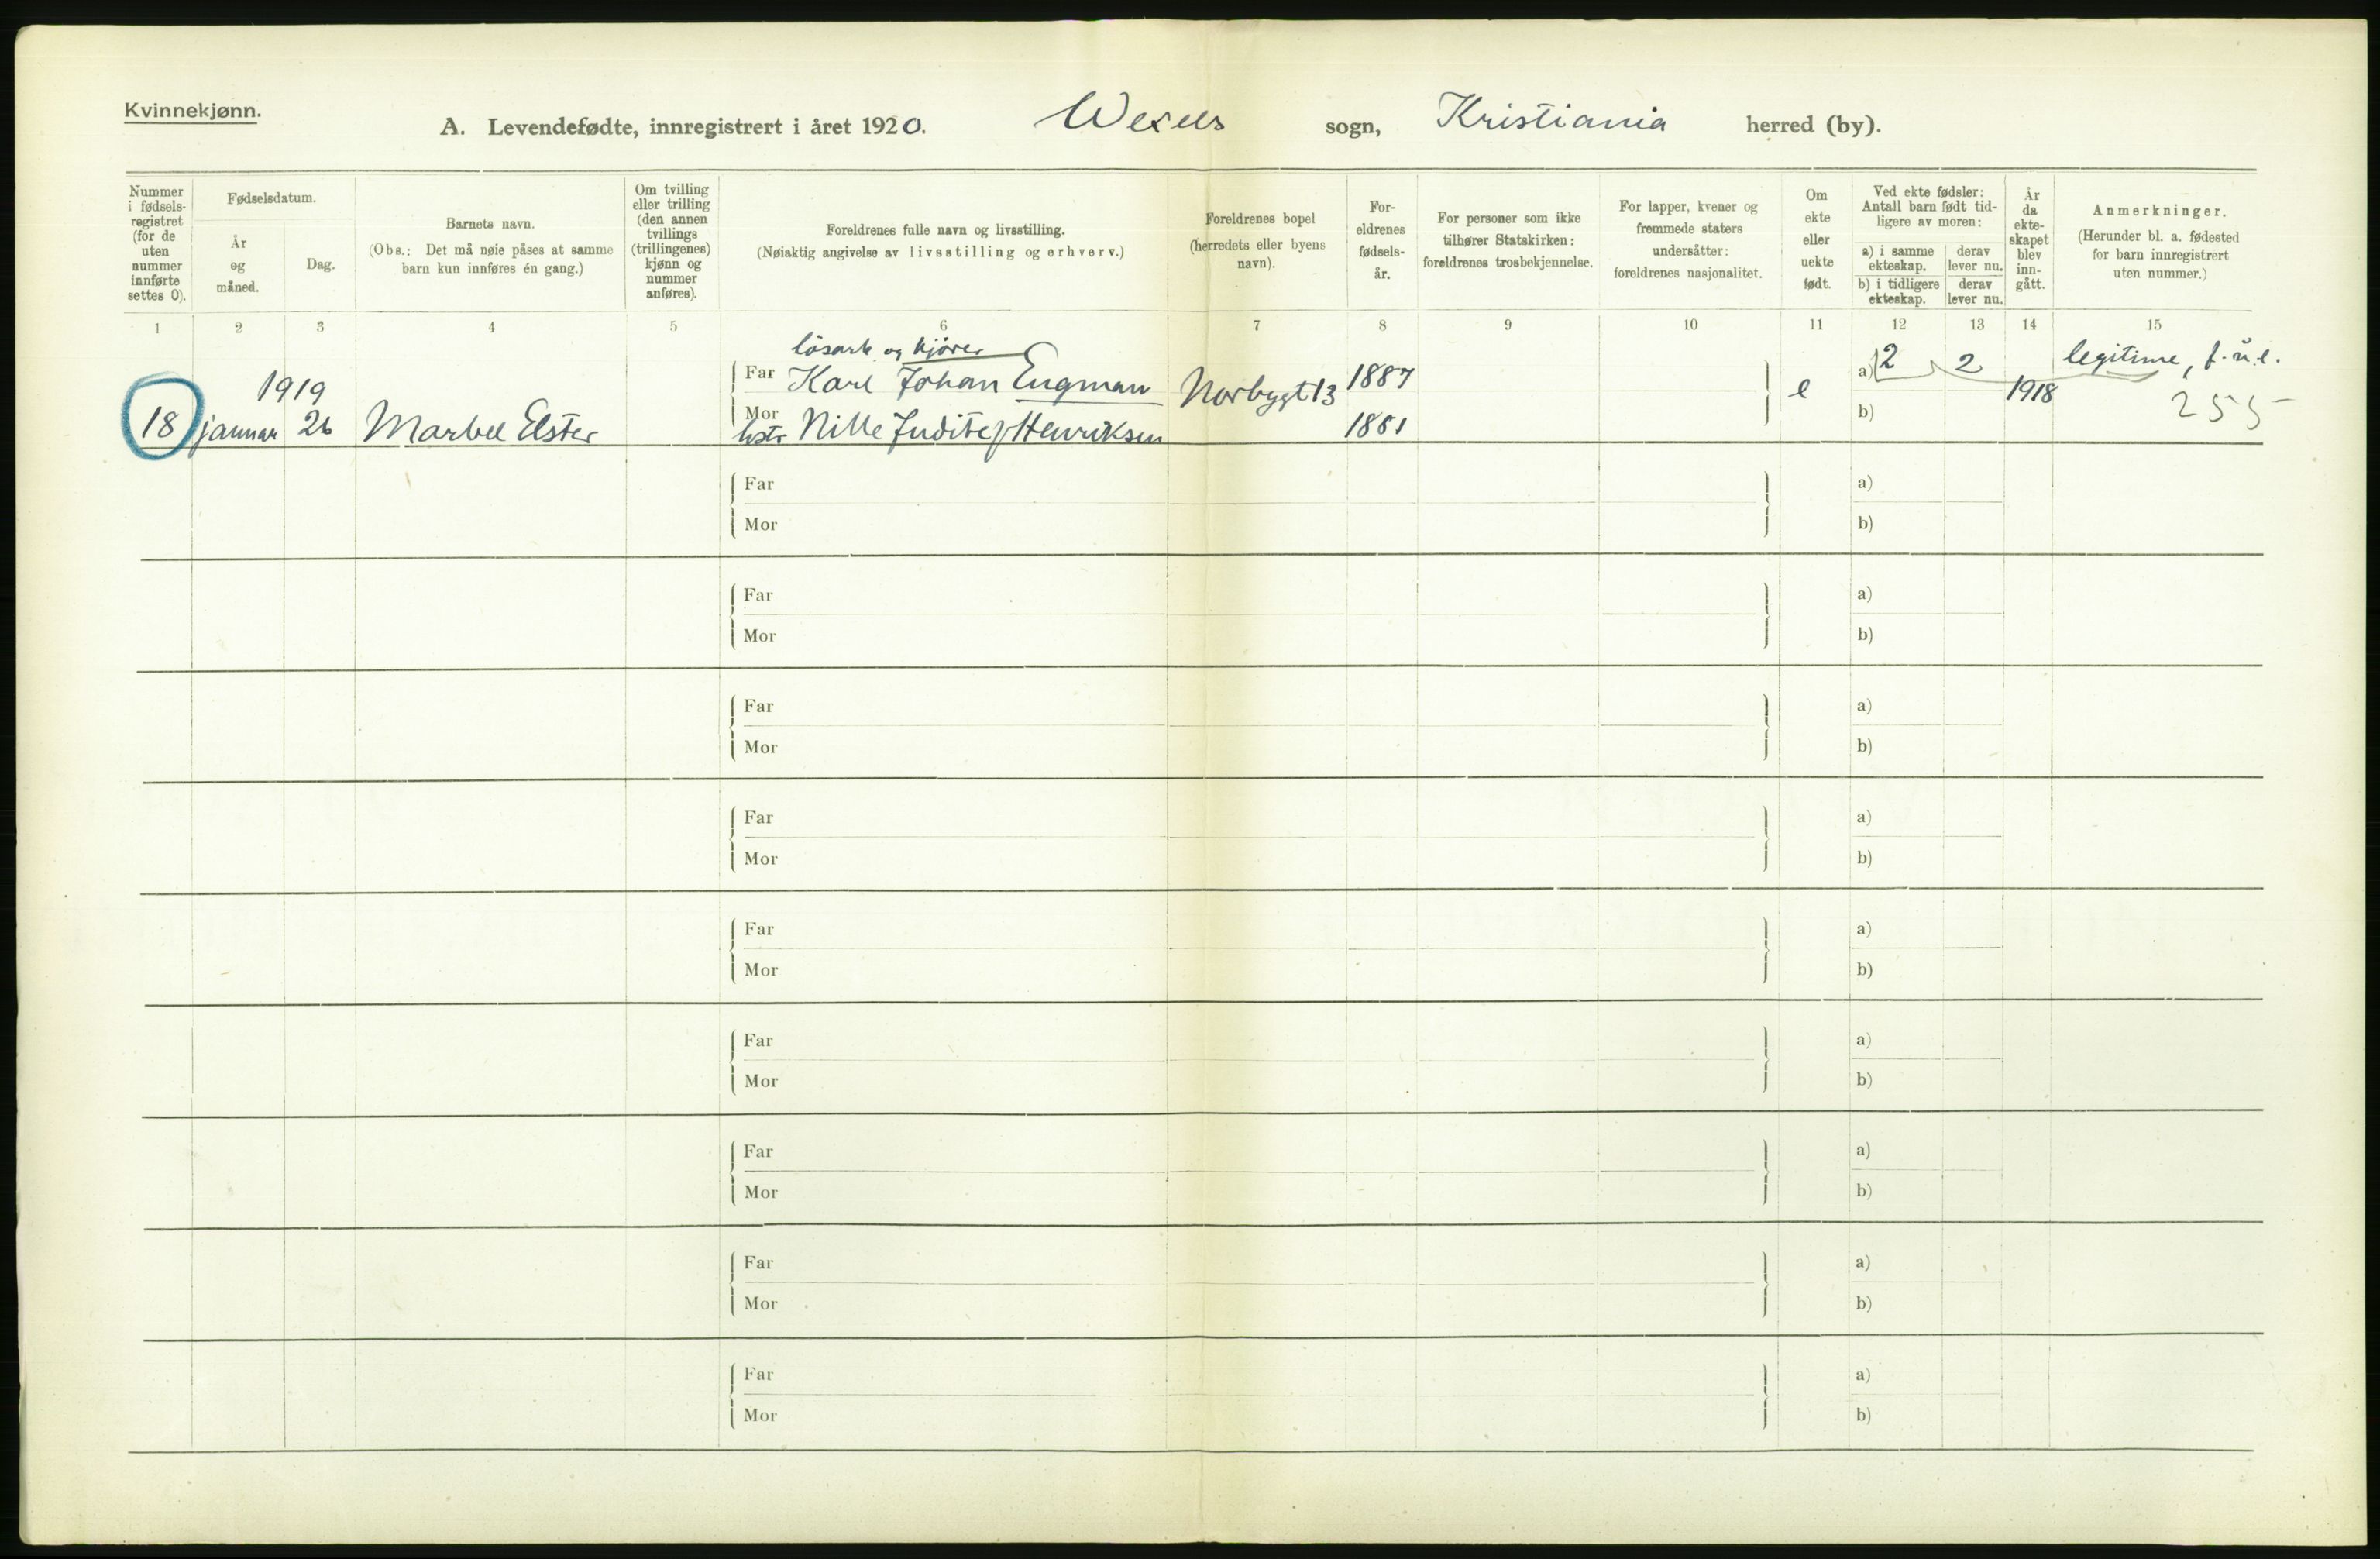 Kvinnekjønn.
A. Levendefødte, innregistrert i året 1920. Wexels sogn, Kristiania herred (by).
Nummer i fødselsregistret (for de uten nummer innførte settes 0).
Fødselsdatum.
År og måned.
Dag.
Barnets navn.
(Obs.: Det må nøie påses at samme barn kun innføres én gang.)
Om tvilling eller trilling (den annen tvillings (trillingenes) kjønn og nummer anføres).
Foreldrenes fulle navn og livsstilling.
(Nøiaktig angivelse av livsstilling og erhverv.)
Foreldrenes bopel
(herredets eller byens navn).
Foreldrenes fødselsår.
For personer som ikke tilhører Statskirken: foreldrenes trosbekjennelse.
For lapper, kvener og fremmede staters undersåtter: foreldrenes nasjonalitet.
Om ekte eller uekte født.
Ved ekte fødsler: Antall barn født tidligere av moren:
a) i samme ekteskap.
derav lever nu.
b) i tidligere ekteskap.
derav lever nu.
År da ekteskapet blev inngått.
Anmerkninger.
(Herunder bl. a. fødested for barn innregistrert uten nummer.)
1 2 3 4 5 6 7 8 9 10 11 12 13 14 15
løsarb og kjører
Far Karl Johan Engman Norbygt 13 1887 a) 2 2 legitime, f.u.e.
1919
e 1918
255
Mor b)
18 januar 26 Marbel Elster hstr Nille Judite f Henriksen 1881
Far a)
Mor b)
Far a)
Mor b)
Far a)
Mor b)
Far a)
Mor b)
Far a)
Mor b)
Far a)
Mor b)
Far a)
Mor b)
Far a)
Mor b)
Far a)
Mor b)